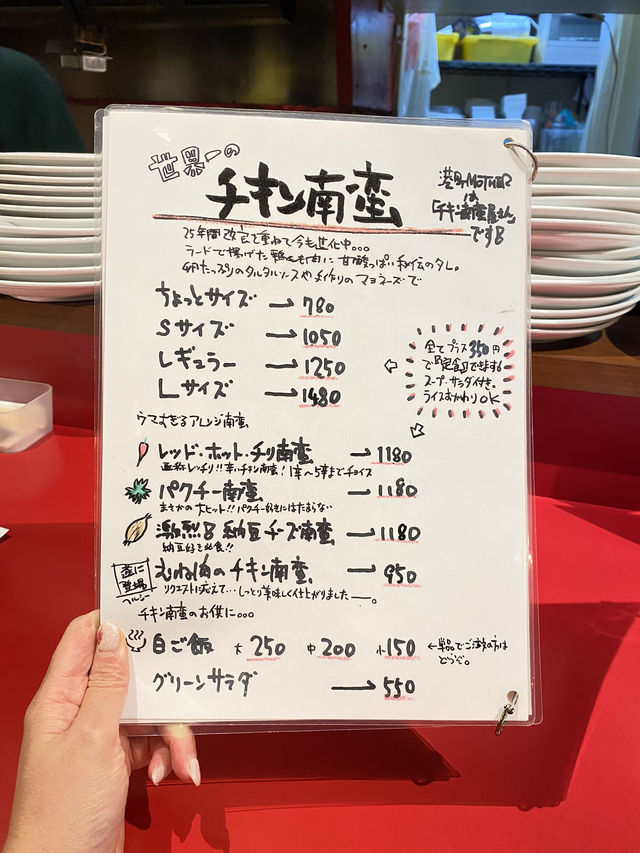 世界一の
チキン南蛮
港町MOTHER
は
「チキン南蛮屋さん」
です
25年間改良を重ねて今も進化中。。。
ラードで揚げた鶏もも肉に甘酸っぱい秘伝のタレ。
卵たっぷりのタルタルソースや手作りのマヨネーズで
ちょっとサイズ → 780
Sサイズ → 1050
レギュラー → 1250
Lサイズ → 1480
全てプラス350円
で「定食」できます
スープ・サラダ付き。
ライスおかわりOK
ウマすぎるアレンジ南蛮
レッド・ホット・チリ南蛮 → 1180
通称レッチリ!!辛・チキン南蛮!1辛〜5辛までチョイス
パクチー南蛮 → 1180
まさかの大ヒット!!パクチー好きにはたまらない
激烈 納豆チーズ南蛮 → 1180
納豆好き必食!!
遂に
登場
ヘルシー
むね肉のチキン南蛮 → 950
リクエストに応えて…しっとり美味しく仕上がりました――。
チキン南蛮のお供に。。。
白ご飯 大250 中200 小150 ←単品でご注文の方は
どうぞ。
グリーンサラダ → 550